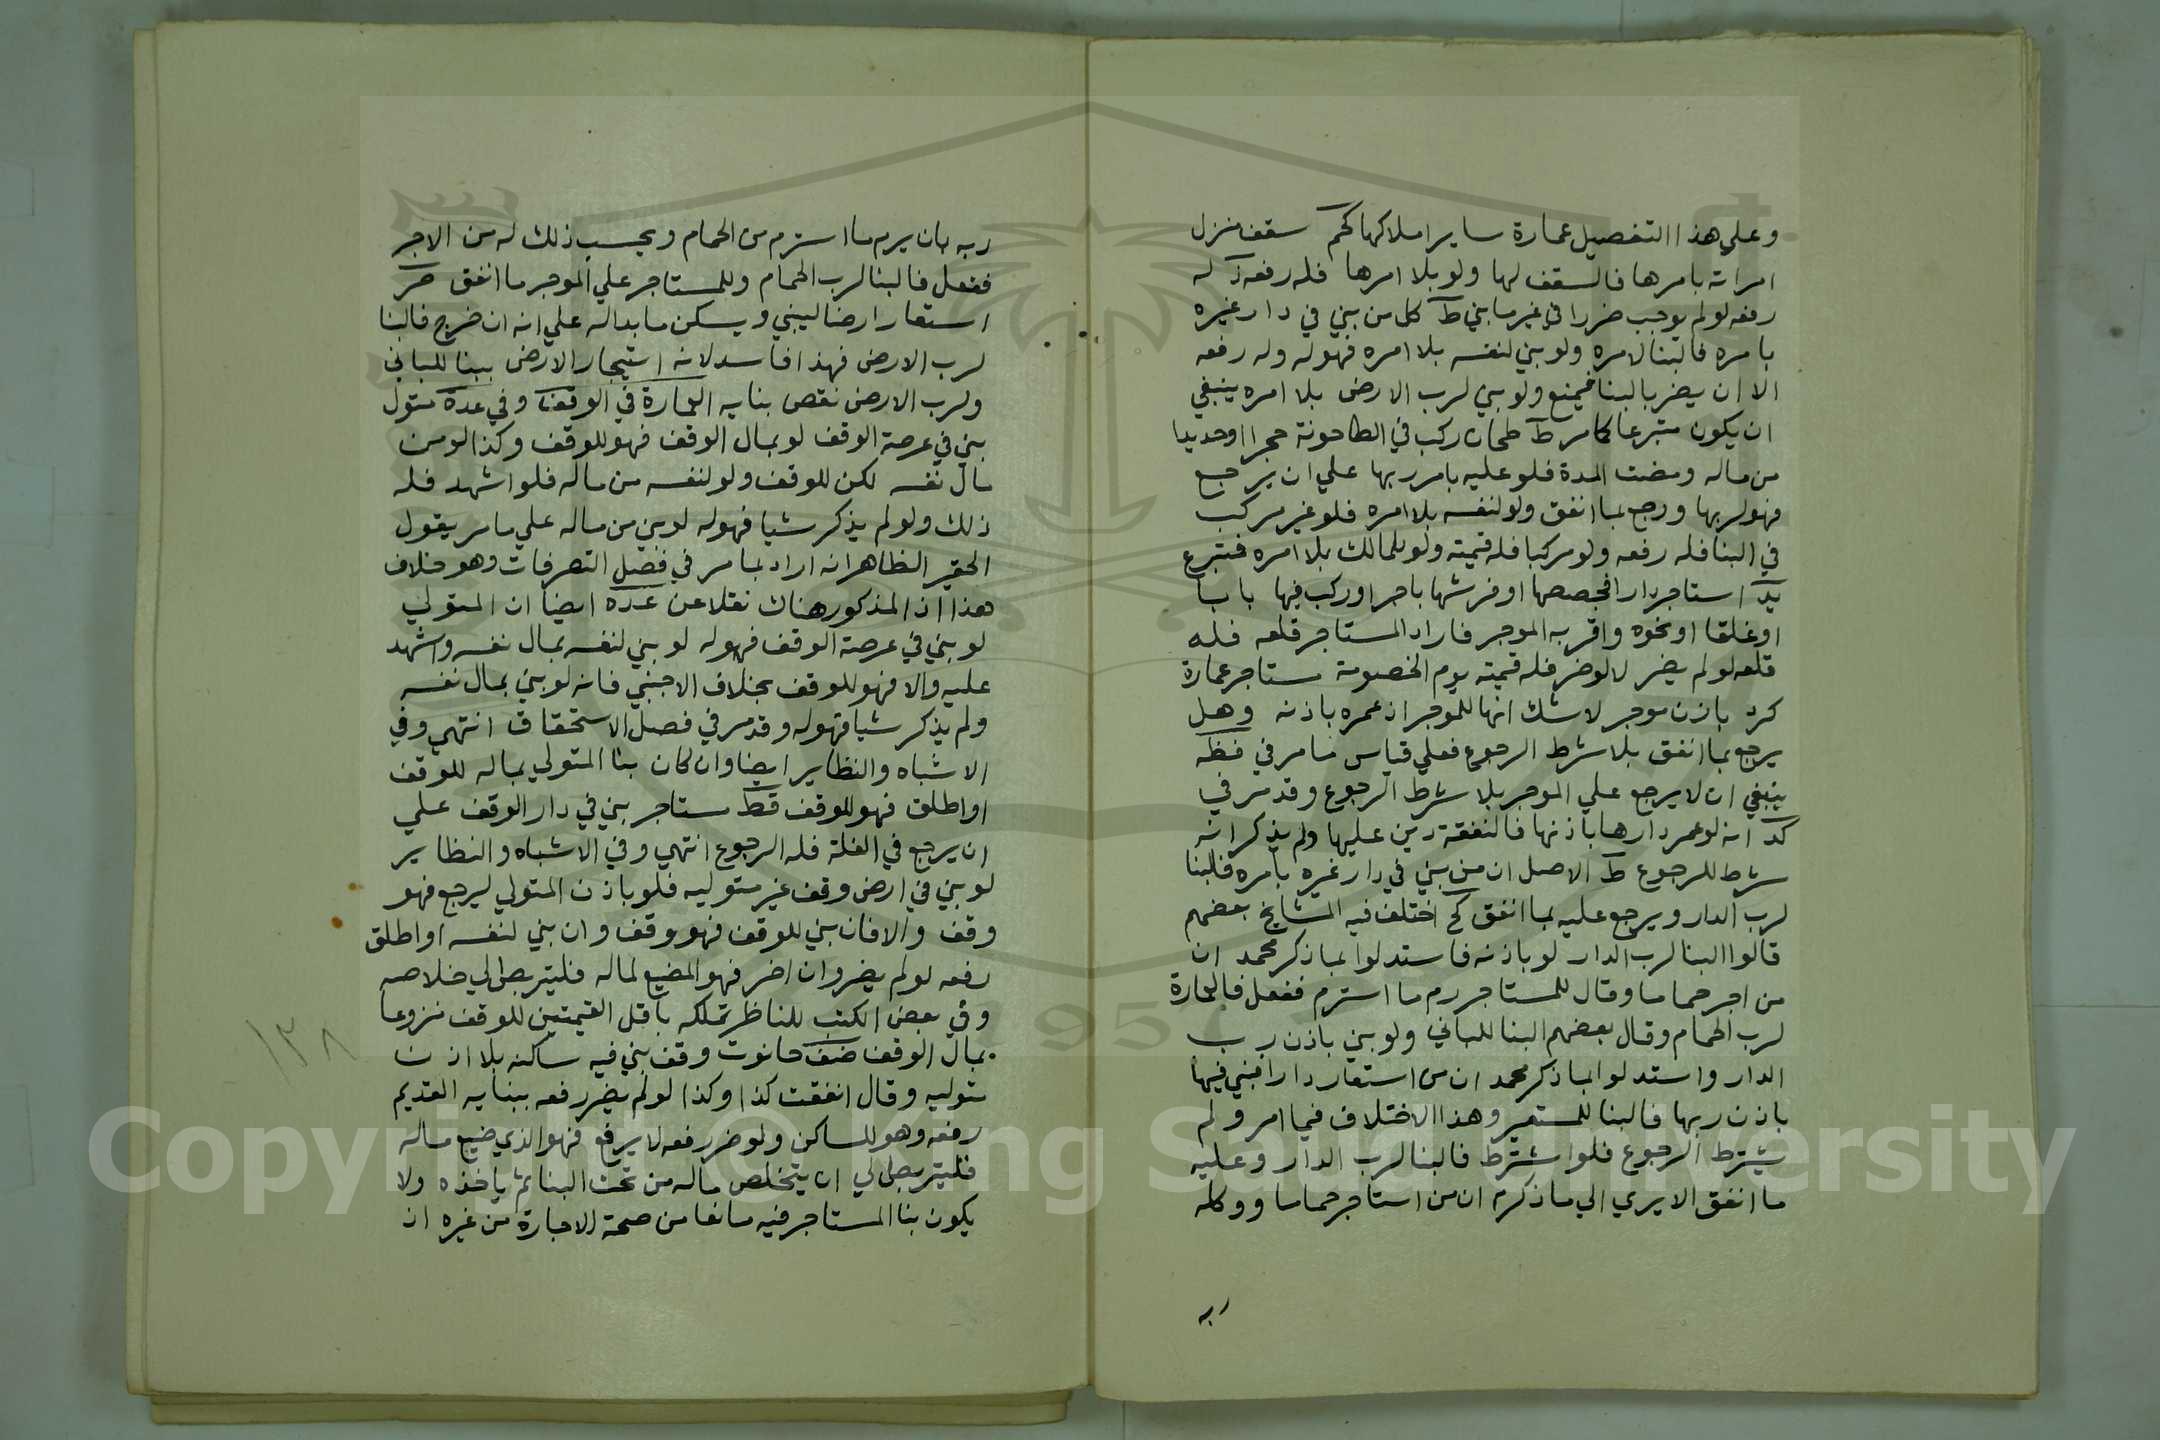 وعلي هذا التفصيل عمارة ساير املاكها كحم سقف منزل
امراته بامرها فالسقف لها ولو بلا امرها فله رفعه له
رفعه لو لم يوجب ضررا في غير ما بني ط كل من بني في دار غيره
بامره فالبنا لامره ولو بني لنفسه بلا امره فهو له وله رفعه
الا ان يضر بالبنا فيمنع ولو بني لرب الارض بلا امره ينبغي
ان يكون متبرعا كما مر ط طحان ركب في الطاحونة حجرا او حديدا
من ماله ومضت المدة فلو عليه بامر ربها علي ان يرجع
فهو لربها ورجع بما انفق ولو لنفسه بلا امره فلو غير مركب
في البنا فله رفعه ولو مركبا فله قيمته ولو للمالك بلا امره فتبرع
يد استاجر دارا فجصصها او فرشها باجر او ركب فيها بابا
او غلقا او نحوه واقر به الموجر فاراد المستاجر قلعه فله
قلعه لو لم يضر لا لو ضر فله قيمته يوم الخصومة مستاجر عمارة
كرد باذن موجر لا شك انها للموجر اذ عمره باذنه وهل
يرجع بما انفق بلا شرط الرجوع فعلي قياس ما مر في فظه
ينبغي ان لا يرجع علي الموجر بلا شرط الرجوع وقد مر في
كد انه لو عمر دارها باذنها فالنفقة دين عليها ولم يذكر انه
شرط للرجوع ط الاصل ان من بني في دار غيره بامره فلبنا
لرب الدار ويرجع عليه بما انفق كح اختلف فيه المشايخ بعضهم
قالوا البنا لرب الدار لو باذنه فاستدلوا بما ذكر محمد ان
من اجر حماما وقال للمستاجر رم ما استرم ففعل فالعمارة
لرب الحمام وقال بعضهم البنا للباني ولو بني باذن رب
الدار واستدلوا بما ذكر محمد ان من استعار دارا فبني فيها
باذن ربها فالبنا للمستعير وهذا الاختلاف فيما امر ولم
يشترط الرجوع فلو اشترط فالبنا لرب الدار وعليه
ما انفق الا يري الي ما ذكر م ان من استاجر حماما ووكله
ربه
ربه بان يرم ما استرم من الحمام ويحسب ذلك له من الاجر
ففعل فالبنا لرب الحمام وللمستاجر علي الموجر ما انفق
استعار ارضا ليبني ويسكن ما بدا له علي انه ان خرج فالبنا
لرب الارض فهذا فاسد لانه استيجار الارض ببنا للباني
ولرب الارض نقض بنايه العمارة في الوقف وفي عده متول
بني في عرصة الوقف لو بمال الوقف فهو للوقف وكذا لو من
مال نفسه لكن للوقف ولو لنفسه من ماله فلو اشهد فله
ذلك ولو لم يذكر شيا فهو له لو بني من ماله علي ما مر يقول
الحقير الظاهر انه اراد بما مر في فصل التصرفات وهو خلاف
هذا اذ المذكور هناك نقلا عن عده ايضا ان المتولي
لو بني في عرصة الوقف فهو له لو بني لنفسه بمال نفسه واشهد
عليه والا فهو للوقف بخلاف الاجنبي فانه لو بني بمال نفسه
ولم يذكر شيا فهو له وقد مر في فصل الاستحقاق انتهي وفي
الاشباه والنظاير ايضا وان كان بنا المتولي بماله للوقف
او اطلق فهو للوقف قط مستاجر بني في دار الوقف علي
ان يرجع في الغلة فله الرجوع انتهي وفي الاشباه والنظاير
لو بني في ارض وقف غير متوليه فلو باذن المتولي ليرجع فهو
وقف والا فان بني للوقف فهو وقف وان بني لنفسه او اطلق
رفعه لو لم يضر وان اضر فهو المضيع لماله فليتربص الي خلاصه
وفي بعض الكتب للناظر تملكه باقل القيمتين للوقف منزوعا
بمال الوقف ضف حانوت وقف بني فيه ساكنه بلا اذن
متوليه وقال انفقت كذا وكذا لو لم يضر رفعه ببنايه القديم
رفعه وهو للساكن ولو ضر رفعه لا يرفع فهو الذي ضيع ماله
فليتربص الي ان يتخلص ماله من تحت البنا ثم ياخذه ولا
يكون بنا المستاجر فيه مانعا من صحة الاجارة من غيره اذ
١٣٨
Copyright © King Saud University
1957